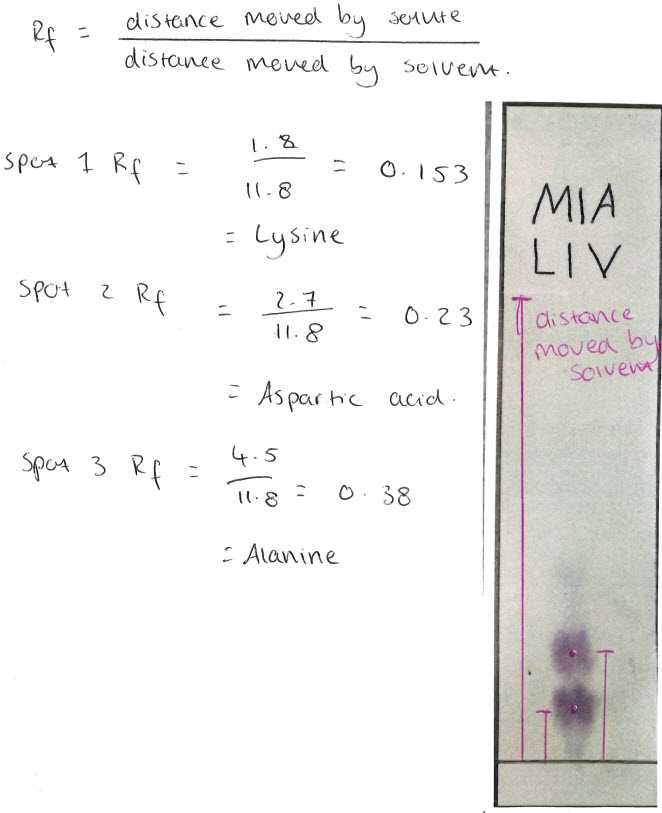 Rf = distance moved by solute
distance moved by solvent.
Spot 1 Rf = 1.8
11.8 = 0.153
= Lysine
Spot 2 Rf = 2.7
11.8 = 0.23
= Aspartic acid.
Spot 3 Rf = 4.5
11.8 = 0.38
= Alanine
MIA
LIV
distance
moved by
solvent